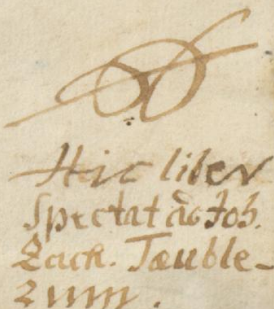 Hic liber
spectat ad Joh.
Zach. Tæuble-
rum.